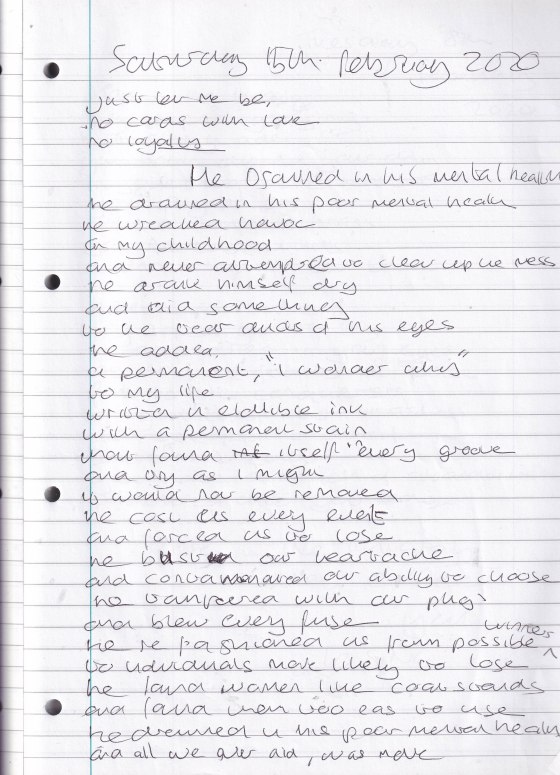 Saturday 15th February 2020
just let me be,
no cards with love
no loyalty
He Drowned in his mental health
he drowned in his poor mental health
he wreaked havoc
in my childhood
and never attempted to clear up the mess
he drank himself dry
and did something
to the tear ducts of his eyes
he added
a permanent, "I wonder why"
to my life
written in eldlible ink
with a permanent stain
that found itself in every groove
and try as I might
it would not be removed
he cost us every event
and forced us to lose
he our heartache
and contaminated our ability to choose
he tampered with our plug
and blew every fuse
he refashioned us from possible winners
to individuals more likely to lose
he found women like coat stands
and found men too eas to use
he drowned in his poor mental health
and all we ever did, was move